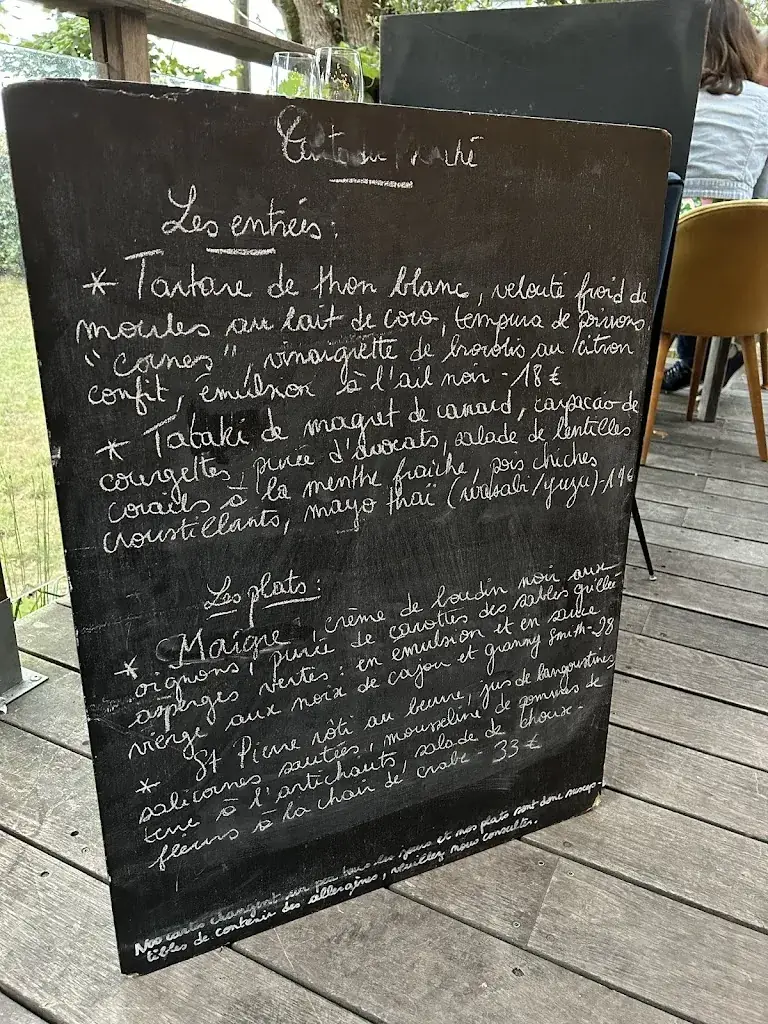 Les entrées :
* Tartare de thon blanc, velouté froid de
moules au lait de coco, tempura de poissons
"Cornes", vinaigrette de brocolis au citron
confit, émulsion à l'ail noir - 18 €
* Tataki de magret de canard, carpaccio de
courgettes, purée d'avocats, salade de lentilles
corails à la menthe fraîche, pois chiches
croustillants, mayo thaï (wasabi/yuzu) -
Les plats :
* Maigre, crème de boudin noir aux
oignons, purée de carottes des sables grillée
asperges vertes : en émulsion et en sauce
vierge aux noix de cajou et granny smith - 28
* St Pierre rôti au beurre, jus de langoustines
salicornes sautées, mousseline de pommes de
terre à l'artichauts, salade de choux -
fleurs à la chair de crabe - 33 €
Nos cartes changent un peu tous les jours et nos plats sont donc suscep-
tibles de contenir des allergènes, veuillez nous consulter.